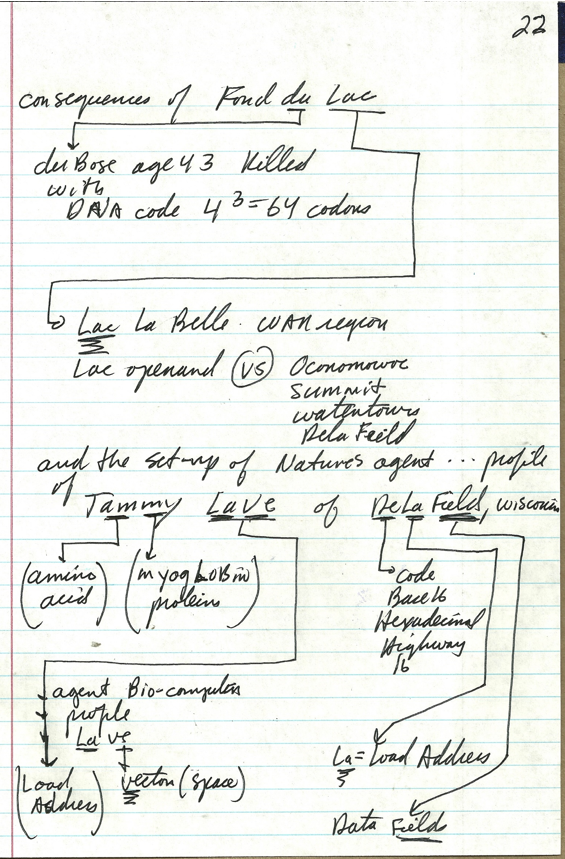 22
consequences of Fond du Lac
du Bose age 43 Killed
with
DNA code 4³=64 codons
Lac La Belle. WAN region
Lac operand VS Oconomowoc
Summit
Watertown
Dela Field
and the set-up of Nature's agent ... profile
of
Tammy LaVe of DeLa Field, Wisconsin
(amino
acid)
(myogLOBin
proteins)
code
Base 16
Hexadecimal
Highway
16
agent Bio-computer
profile
La ve
(Load
Address)
vector (space)
La = Load Address
Data Fields